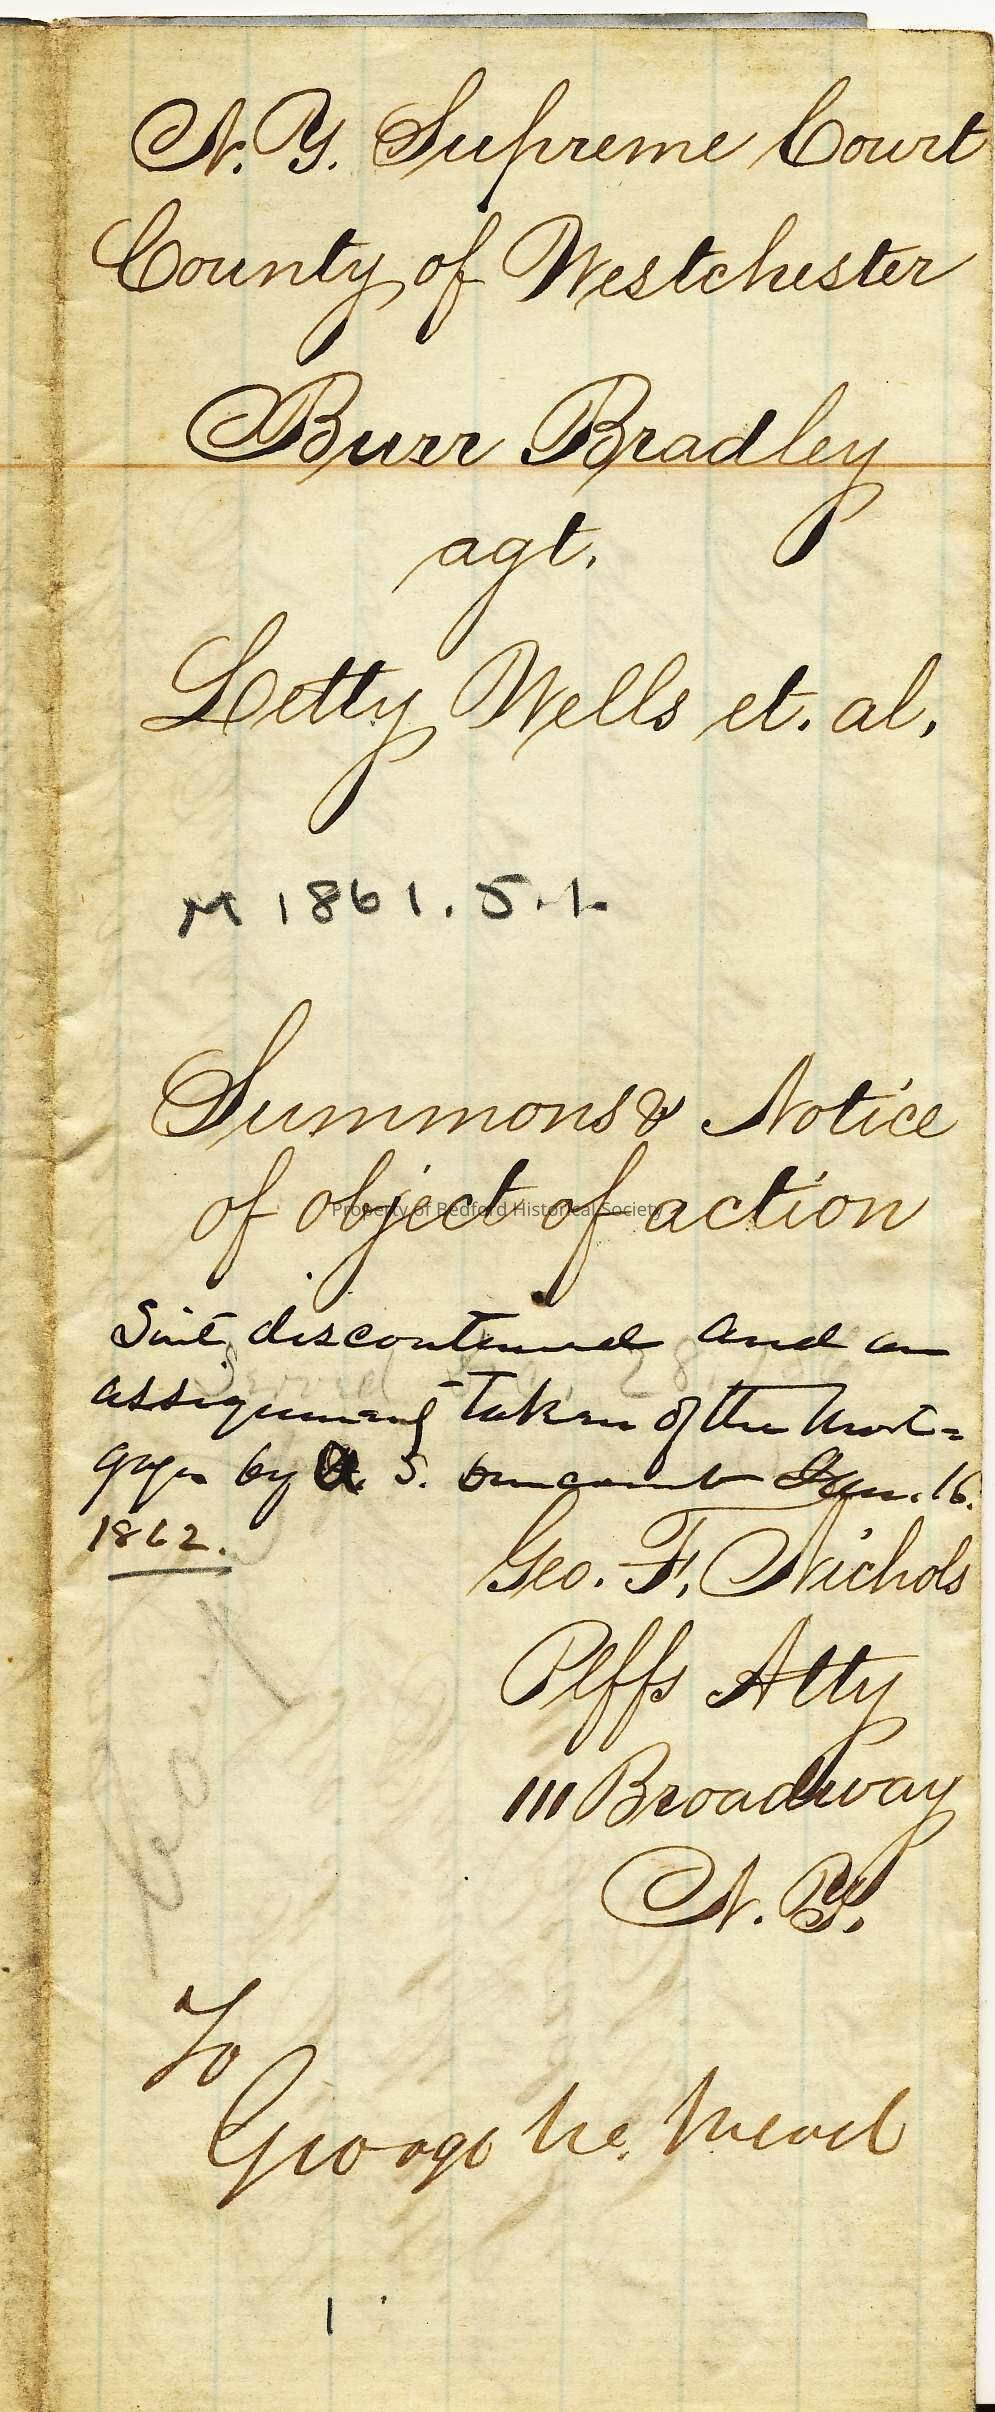 N. Y. Supreme Court
County of Westchester
Burr Bradley
agt.
Letty Wells et. al.
M 1861. 5. 1.
Summons & Notice
of object of action
Property of Bedford Historical Society
Suit discontinued and an
assignment taken of the Mort=
gage by S. Jan. 16.
1862.
Geo. F. Nichols
Plffs Atty
111 Broadway
N. Y.
Copy
To
George Mead
1